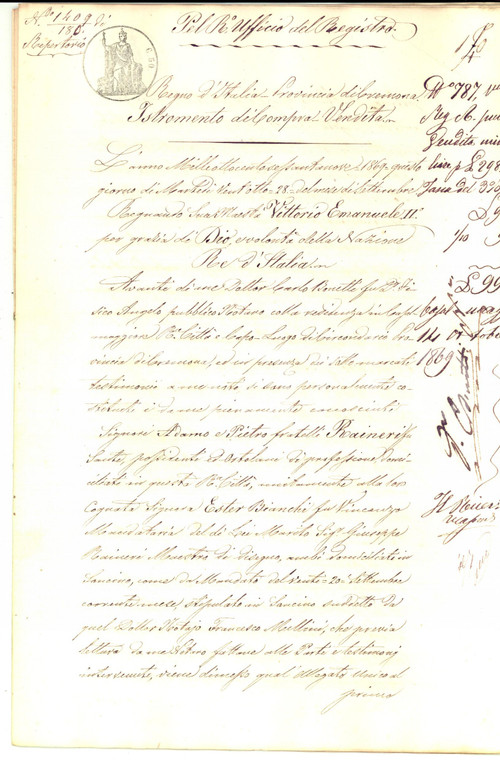 N.° 1409 di
180.
Repertorio
Pel R.° Ufficio del Registro.
C. 50
Regno d'Italia Provincia di Cremona
Istromento di Compra Vendita
L'anno Mille ottocento sessantanove 1869 questo
giorno di Martedì Ventotto 28 del mese di Settembre
Regnando Sua Maestà Vittorio Emanuele II.
per grazia di Dio, e volontà della Nazione
Re d'Italia
Avanti di me Dottor Carlo fu D.r
Angelo pubblico Notaro colla residenza in Casal-
maggiore R.a Città e Capo-Luogo di Circondario Pro-
vincia di Cremona, ed in presenza dei sottomarcati
testimonj a me noti si sono personalmente co-
stituiti e da me pienamente conosciuti
Signori Adamo e Pietro fratelli Raineri fu
Sante, possidenti ed Ortolani di professione domici-
liati in questa R.a Città, unitamente alla loro
Cognata Signora Ester Bianchi fu Vincenzo
Mandataria del di Lei Marito Sig.r Giuseppe
Raineri Maestro di disegno, ambi domiciliati in
Soncino, come da Mandato del venti 20 Settembre
corrente mese, stipulato in Soncino suddetto da
quel Dottor Notajo Francesco che previa
lettura da me Notaro fattane alle Parti e testimonj
intervenuti, viene dimesso qual allegato unico al
primo
N° 787,
Reg. A.
Vendita
£ 298
£ 99
14 ottobre
1869
Il